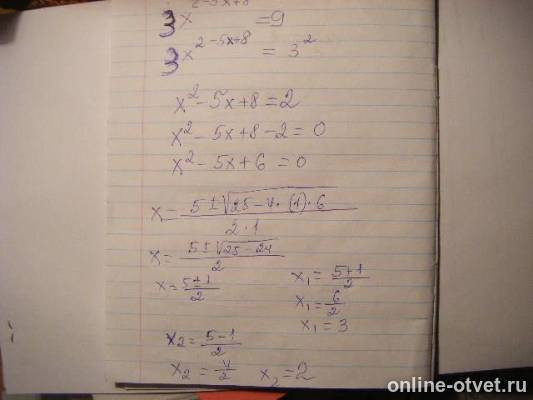 3x^2-5x+8 = 9
3x^2-5x+8 = 3^2
x^2 - 5x + 8 = 2
x^2 - 5x + 8 - 2 = 0
x^2 - 5x + 6 = 0
x = 5 ± √25 - 4 · (1) · 6 / 2 · 1
x = 5 ± √25 - 24 / 2
x = 5 ± 1 / 2
x1 = 5+1 / 2
x1 = 6 / 2
x1 = 3
x2 = 5-1 / 2
x2 = 4 / 2 x2 = 2
online-otvet.ru